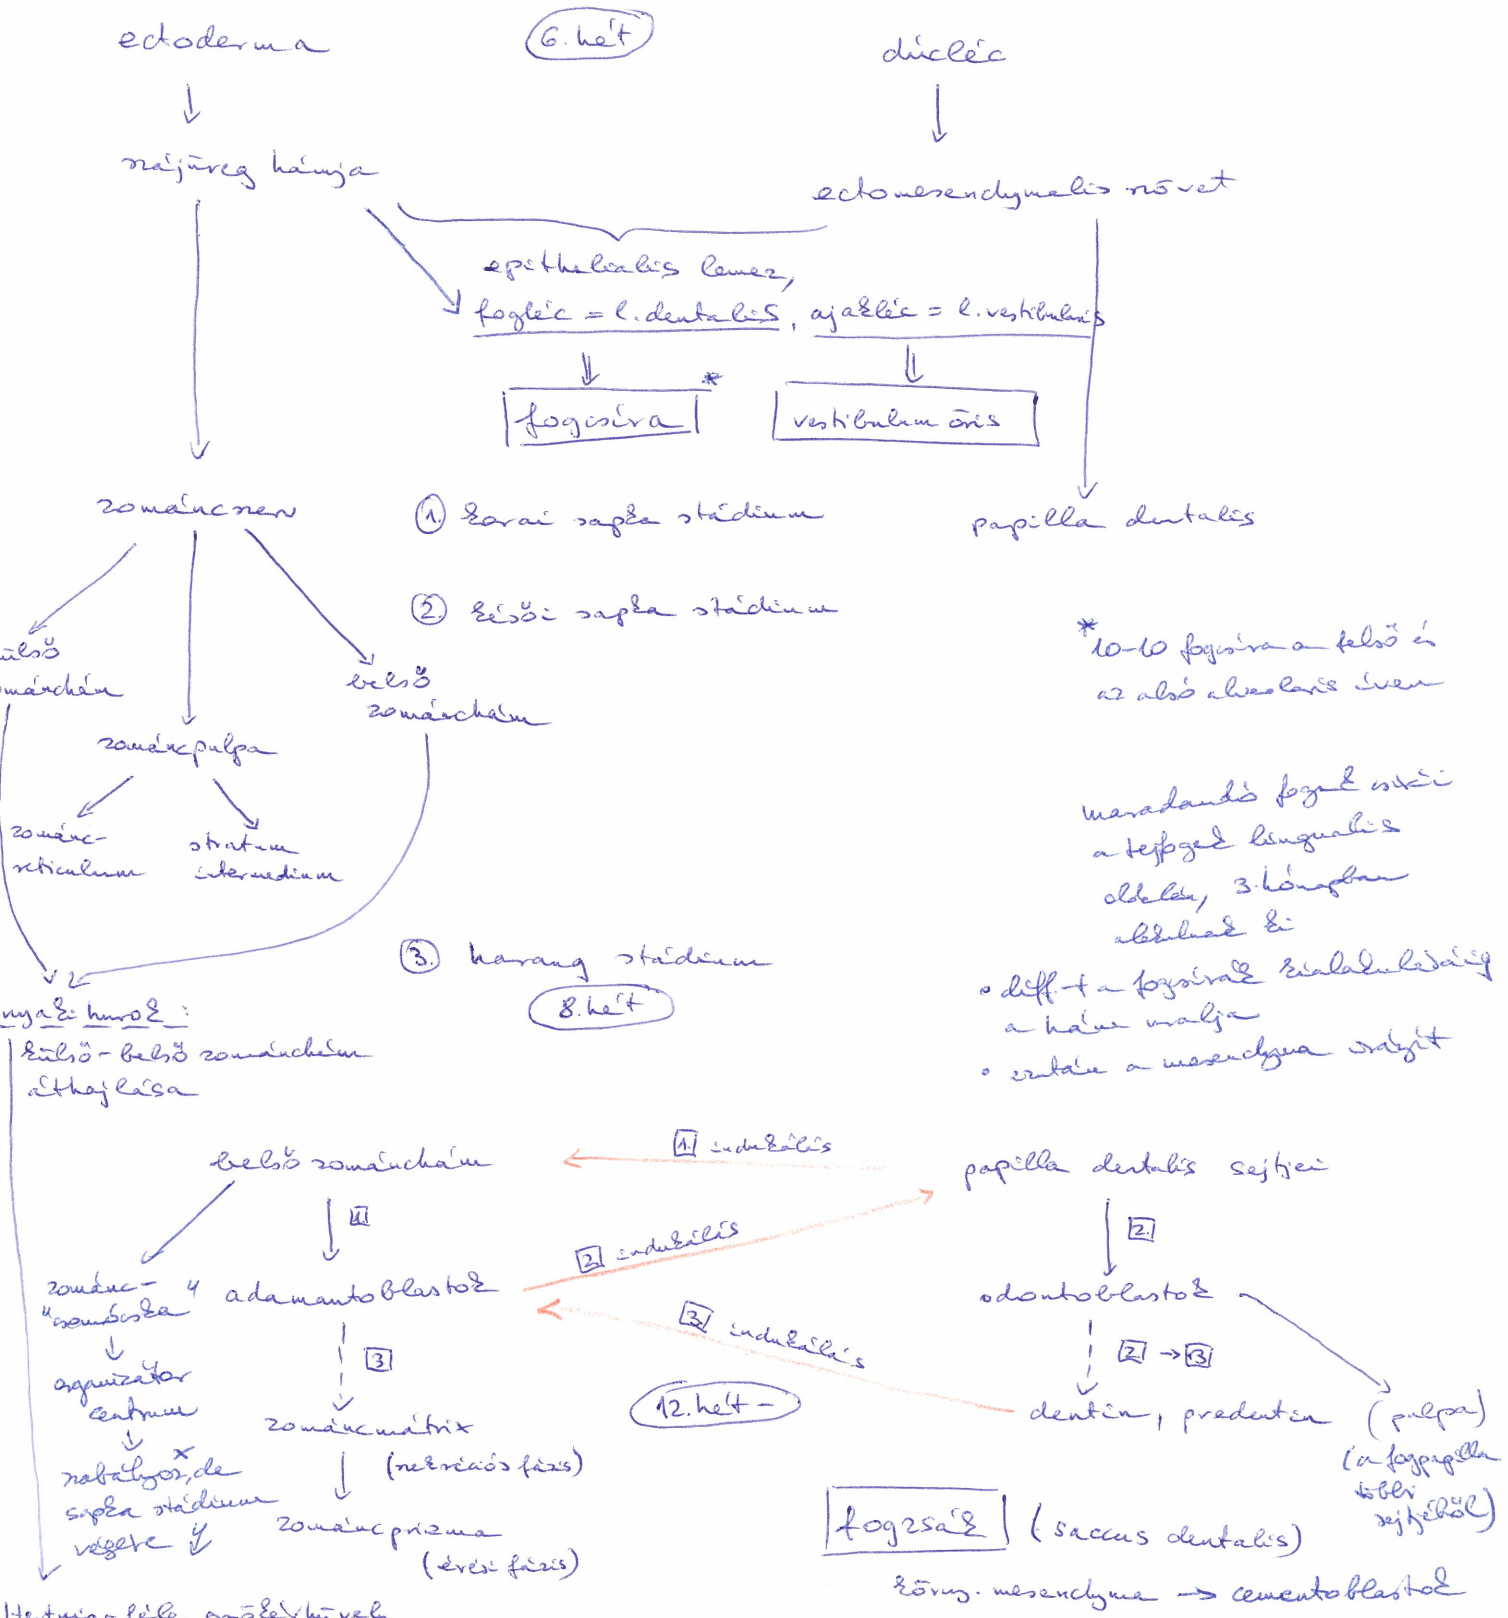 ectoderma
6. hét
dúcléc
szájüreg hámja
ectomesenchymalis szövet
epithelialis lemez,
fogléc = l. dentalis, ajakléc = l. vestibularis
fogcsíra *
vestibulum oris
zománcszerv
① korai sapka stádium
papilla dentalis
② késői sapka stádium
külső
zománchám
belső
zománchám
* 10-10 fogcsíra a felső és
az alsó alveolaris íven
zománcpulpa
zománc-
reticulum
stratum
intermedium
maradandó fogak csírái
a tejfogak lingualis
oldalán, 3. hónapban
alakulnak ki
③ harang stádium
8. hét
• diff-t a fogcsírák kialakulásáig
a hám uralja
• ezután a mesenchyma irányít
nyaki hurok:
külső-belső zománchám
áthajlása
belső zománchám
1. indukálás
papilla dentalis sejtjei
1.
2.
2. indukálás
zománc-
"csomócska"
adamantoblastok
odontoblastok
3. indukálás
3
2 → 3
organizátor
centrum
12. hét -
zománcmátrix
(szekréciós fázis)
dentin, predentin
(pulpa)
(a fogpapilla
többi
sejtjéből)
szabályoz, de
sapka stádium
végére
zománcprizma
(érési fázis)
fogzsák (saccus dentalis)
körny. mesenchyma → cementoblastok
Hertwig-féle gyökérhüvely